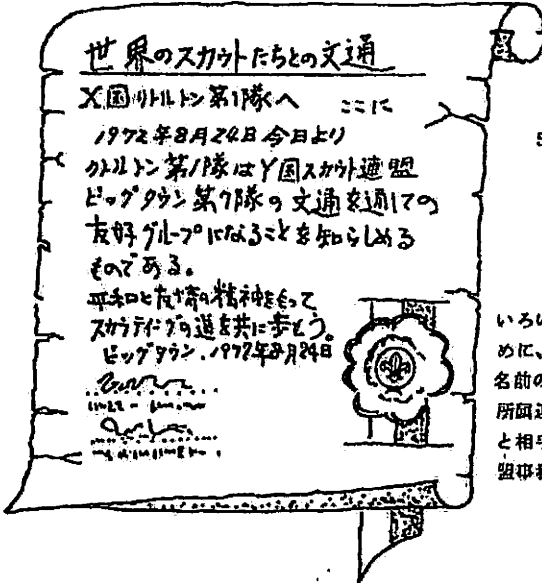 世界のスカウトたちとの文通
X国リトルトン第1隊へ ここに
1972年8月24日今日より
リトルトン第1隊はY国スカウト連盟
ビッグタウン第7隊の文通を通しての
友好グループになることを知らしめる
ものである。
平和と友情の精神をもって
スカウティングの道を共に歩もう。
ビッグタウン、1972年8月24日
いろい
めに、
名前の
所属連
と相手
盟事務